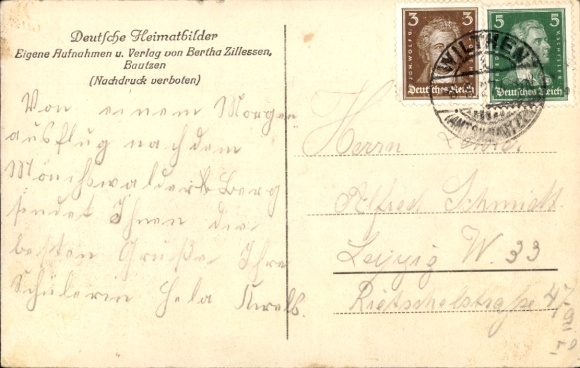 Deutsche Heimatbilder
Eigene Aufnahmen u. Verlag von Bertha Zillessen,
Bautzen
(Nachdruck verboten)
3 3
JOH. WOLFG.
Deutsches Reich
5 5
Deutsches Reich
WILTHEN
Von einem Morgen
ausflug nach dem
Mönchswalder Berg
sendet Ihnen die
besten Grüße Ihre
Schülerin Hela
Herrn
Lehrer
Alfred Schmidt
Leipzig W. 33
Rietschelstraße 47